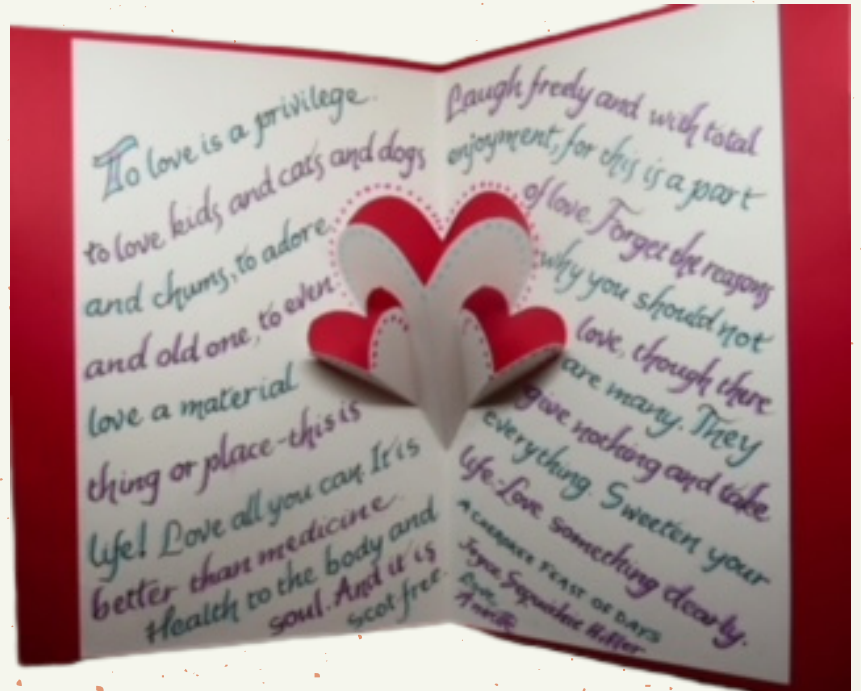 To love is a privilege.
to love kids and cats and dogs
and chums, to adore
and old one, to even
love a material
thing or place-this is
life! Love all you can. It is
better than medicine.
Health to the body and
soul. And it is
scot free.
Laugh freely and with total
enjoyment, for this is a part
of love. Forget the reasons
why you should not
love, though there
are many. They
give nothing and take
everything. Sweeten your
life-Love something dearly.
A CHEROKEE FEAST OF DAYS
Joyce Sequichie Hifler